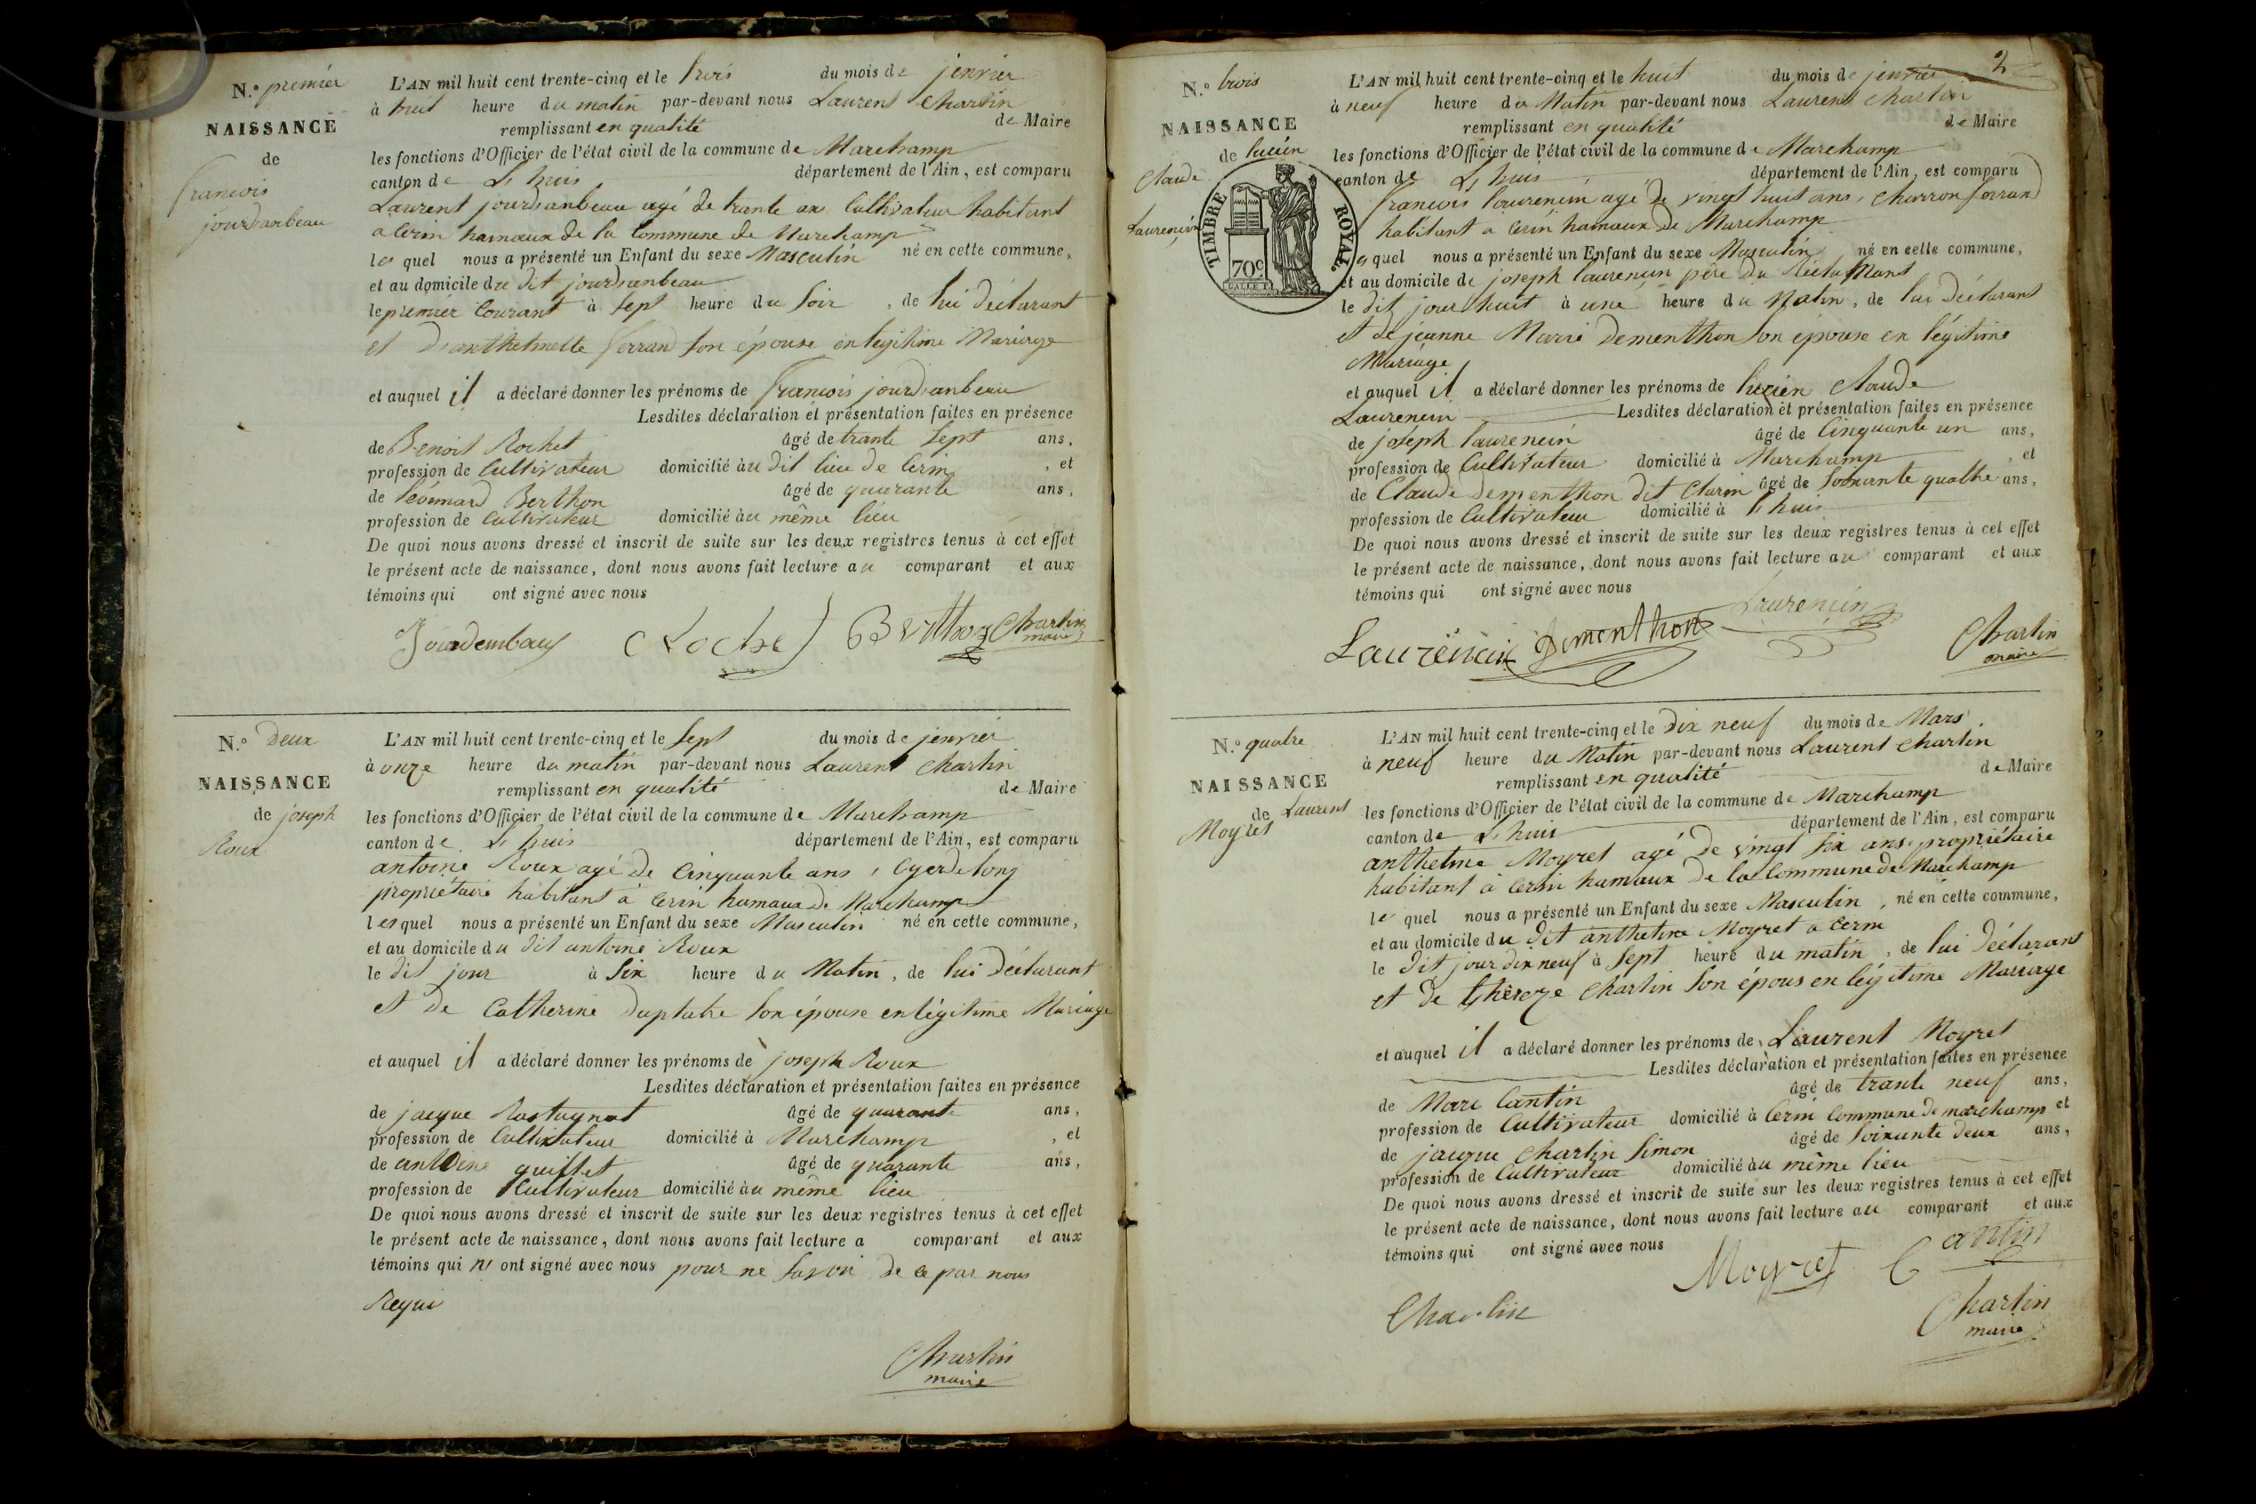 N.º premier
NAISSANCE
de
francois
jourdanbeau
L'AN mil huit cent trente-cinq et le trois du mois de jenvier
à huit heure du matin par-devant nous Laurent Charlin
remplissant en qualité de Maire
les fonctions d'Officier de l'état civil de la commune de Marchamp
canton de L'huis département de l'Ain, est comparu
Laurent jourdanbeau agé de trante ans Cultivateur habitant
a Cerin hamaux de la Commune de Marchamp
le quel nous a présenté un Enfant du sexe Masculin né en cette commune,
et au domicile du dit jourdanbeau
le premier Courant à sept heure du soir, de lui déclarant
et d'anthelmette ferrand son épouse en légitime Mariage
et auquel il a déclaré donner les prénoms de francois jourdanbeau
Lesdites déclaration et présentation faites en présence
de Benoit Rochet âgé de trante sept ans,
profession de Cultivateur domicilié au dit lieu de Cerin, et
de Léonnard Berthon âgé de quarante ans,
profession de Cultivateur domicilié au même lieu
De quoi nous avons dressé et inscrit de suite sur les deux registres tenus à cet effet
le présent acte de naissance, dont nous avons fait lecture au comparant et aux
témoins qui ont signé avec nous
Rochet Berthon Charlin
maire
N.º Deux
NAISSANCE
de joseph
Roux
L'AN mil huit cent trente-cinq et le sept du mois de jenvier
à onze heure du matin par-devant nous Laurent Charlin
remplissant en qualité de Maire
les fonctions d'Officier de l'état civil de la commune de Marchamp
canton de L'huis département de l'Ain, est comparu
antoine Roux agé de Cinquante ans,
propriétaire habitant à Cerin hamaux de Marchamp
lequel nous a présenté un Enfant du sexe Masculin né en cette commune,
et au domicile du dit antoine Roux
le dit jour à six heure du Matin, de lui déclarant
et de Catherine son épouse en légitime Mariage
et auquel il a déclaré donner les prénoms de joseph Roux
Lesdites déclaration et présentation faites en présence
de jacque Rostagnat âgé de quarante ans,
profession de Cultivateur domicilié à Marchamp, et
de antoine quillet âgé de quarante ans,
profession de Cultivateur domicilié au même lieu
De quoi nous avons dressé et inscrit de suite sur les deux registres tenus à cet effet
le présent acte de naissance, dont nous avons fait lecture a comparant et aux
témoins qui n' ont signé avec nous pour ne savoir de ce par nous
Requi
Charlin
maire
2
N.º trois
NAISSANCE
de lucien
Claude
Laurencin
TIMBRE ROYAL.
70c
L'AN mil huit cent trente-cinq et le huit du mois de jenvier
à neuf heure du Matin par-devant nous Laurent Charlin
remplissant en qualité de Maire
les fonctions d'Officier de l'état civil de la commune de Marchamp
canton de L'huis département de l'Ain, est comparu
francois laurencin agé de vingt huit ans, Charron
habitant a Cerin hamaux de Marchamp
le quel nous a présenté un Enfant du sexe Masculin né en cette commune,
et au domicile de joseph laurencin père du
le dit jour huit à une heure du Matin, de lui déclarant
et de jeanne Marie Dementhon son épouse en légitime
Mariage
et auquel il a déclaré donner les prénoms de lucien Claude
Laurencin Lesdites déclaration et présentation faites en présence
de joseph laurencin âgé de Cinquante un ans,
profession de Cultivateur domicilié à Marchamp, et
de Claude Dementhon dit Clarin âgé de soixante quatre ans,
profession de Cultivateur domicilié à L'huis
De quoi nous avons dressé et inscrit de suite sur les deux registres tenus à cet effet
le présent acte de naissance, dont nous avons fait lecture au comparant et aux
témoins qui ont signé avec nous
Laurencin Dementhon Laurencin Charlin
maire
N.º quatre
NAISSANCE
de Laurent
Moyret
L'AN mil huit cent trente-cinq et le dix neuf du mois de Mars
à neuf heure du Matin par-devant nous Laurent Charlin
remplissant en qualité de Maire
les fonctions d'Officier de l'état civil de la commune de Marchamp
canton de L'huis département de l'Ain, est comparu
anthelme Moyret agé de vingt six ans propriétaire
habitant à Cerin hamaux de la Commune de Marchamp
le quel nous a présenté un Enfant du sexe Masculin, né en cette commune,
et au domicile du dit anthelme Moyret a Cerin
le dit jour dix neuf à sept heure du matin, de lui déclarant
et de thereze Charlin son épous en légitime Mariage
et auquel il a déclaré donner les prénoms de Laurent Moyret
Lesdites déclaration et présentation faites en présence
de Marc Cantin âgé de trante neuf ans,
profession de Cultivateur domicilié à Cerin Commune de marchamp et
de jacque Charlin Simon âgé de soixante deux ans,
profession de Cultivateur domicilié au même lieu
De quoi nous avons dressé et inscrit de suite sur les deux registres tenus à cet effet
le présent acte de naissance, dont nous avons fait lecture au comparant et aux
témoins qui ont signé avec nous
Moyret Cantin
Charlin Charlin
maire